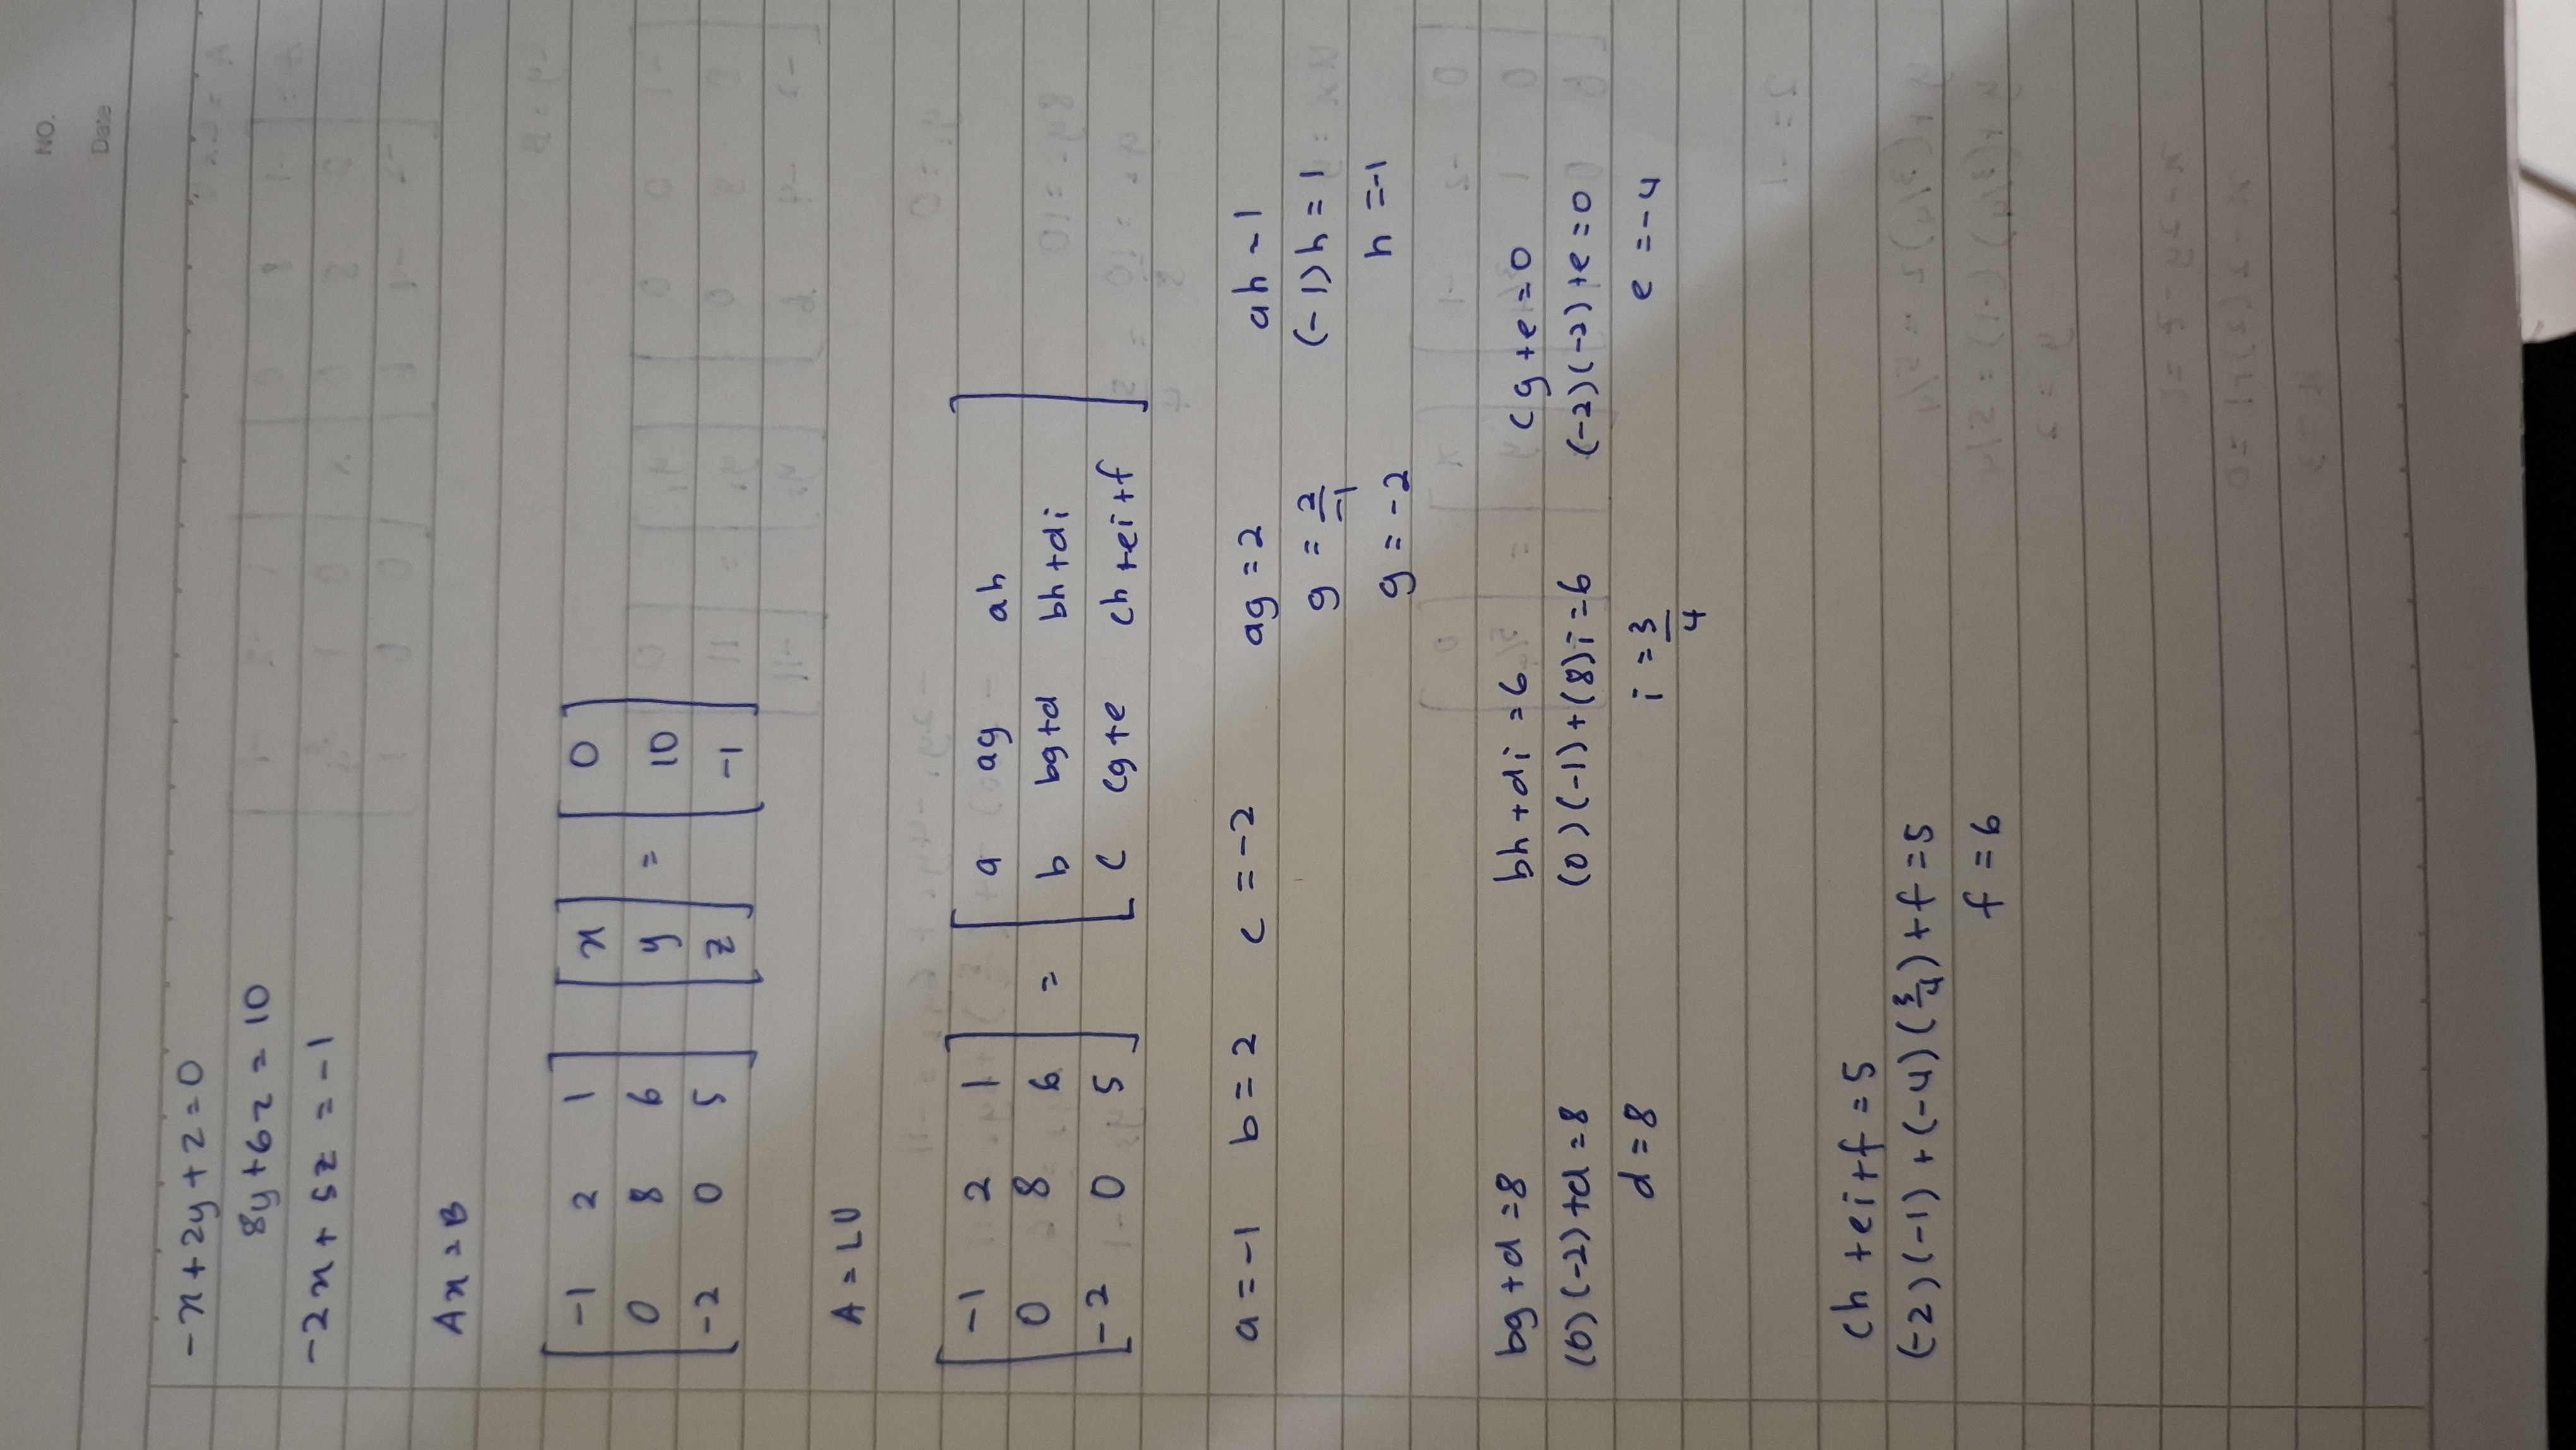 NO.
Date
-x+2y+z=0
8y+6z=10
-2x+5z=-1
Ax=B
[-1 2 1] [x] [0]
[0 8 6] [y] = [10]
[-2 0 5] [z] [-1]
A=LU
[-1 2 1] [a ag ah]
[0 8 6] = [b bg+d bh+di]
[-2 0 5] [c cg+e ch+ei+f]
a=-1 b=2 c=-2 ag=2 ah-1
g=2/-1 (-1)h=1
g=-2 h=-1
bg+d=8 bh+di=6 cg+e=0
(0)(-2)+d=8 (0)(-1)+(8)i=6 (-2)(-2)+e=0
d=8 i=3/4 e=-4
ch+ei+f=5
(-2)(-1)+(-4)(3/4)+f=5
f=6